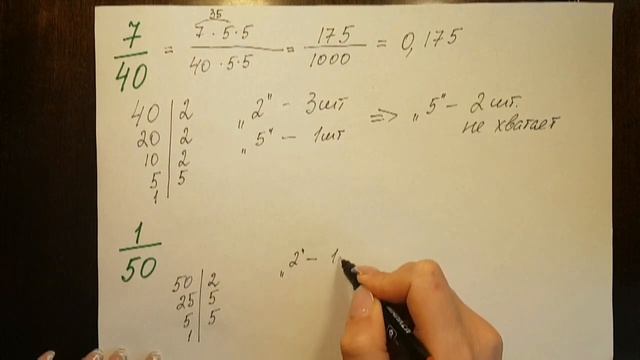 35
7/40 = 7 · 5 · 5 / 40 · 5 · 5 = 175/1000 = 0,175
40 | 2
20 | 2
10 | 2
5 | 5
1
„2" – 3 шт
„5" – 1 шт
=> „5" – 2 шт.
не хватает
1/50
50 | 2
25 | 5
5 | 5
1
„2" – 1